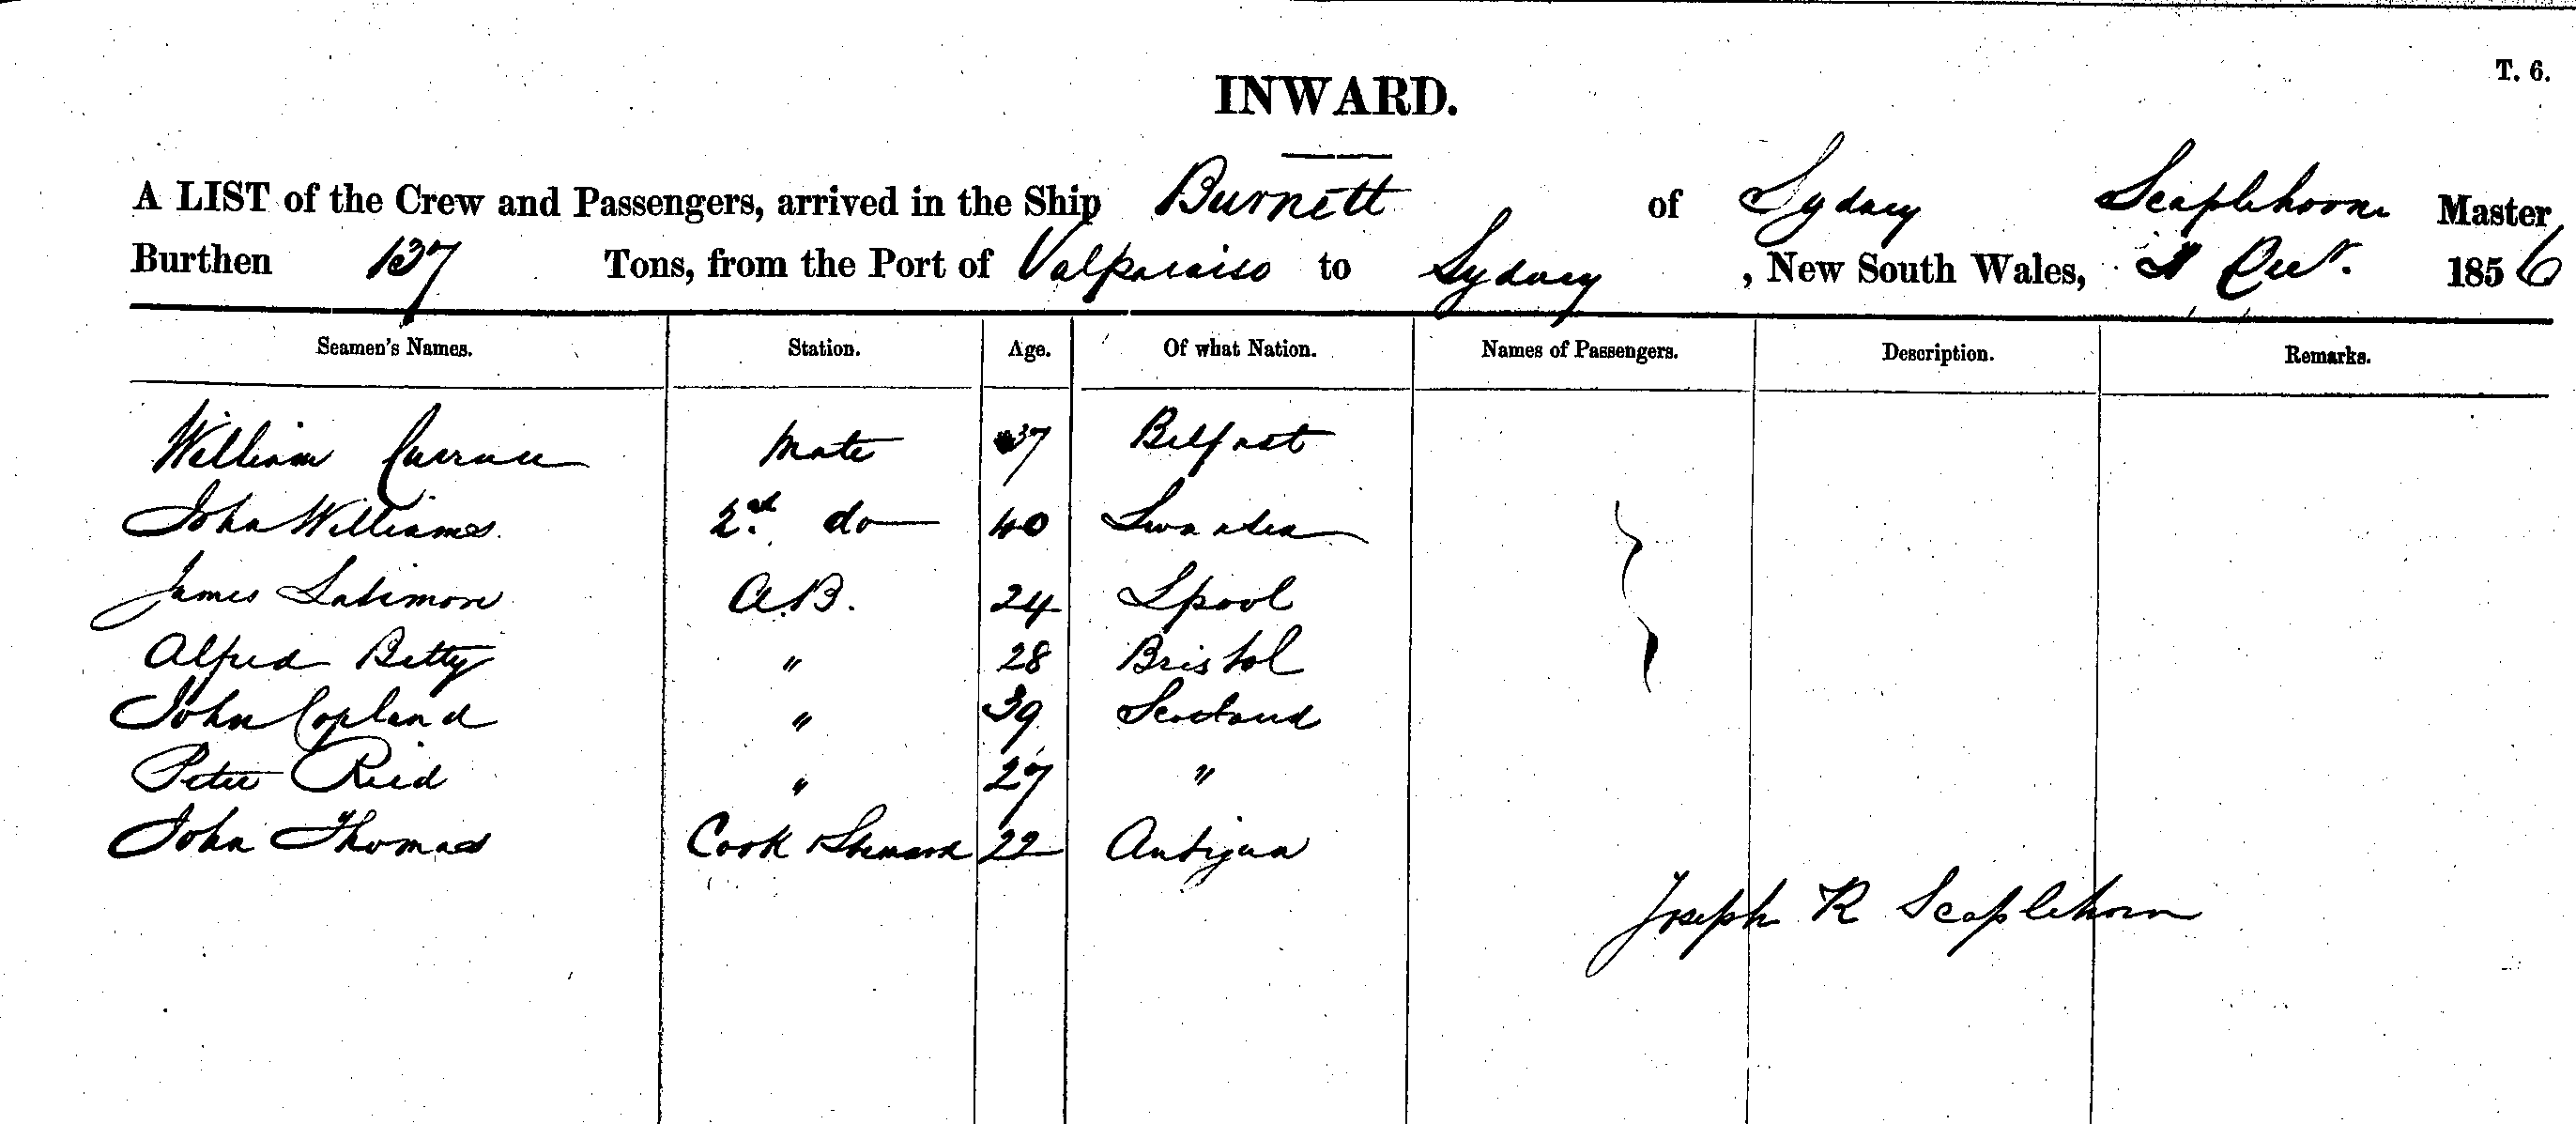 T. 6.
INWARD.
A LIST of the Crew and Passengers, arrived in the Ship Burnett of Sydney Scaplehorn Master
Burthen 137 Tons, from the Port of Valparaiso to Sydney, New South Wales, Decr. 1856
Seamen's Names. Station. Age. Of what Nation. Names of Passengers. Description. Remarks.
William Mate 37 Belfast
John Williams 2nd do 40 Swansea
James Latimore A.B. 24 Lpool
Alfred Betty " 28 Bristol
John Copland " 39 Scotland
Peter Reid " 27 "
John Thomas Cook Steward 22 Antigua
Joseph R Scaplehorn